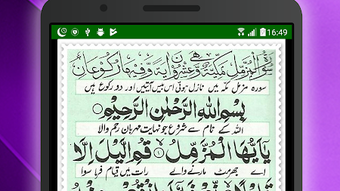 16:49
سورہ مزمل مکہ میں نازل ہوئی اس میں بیس آیتیں اور دو رکوع ہیں
بِسْمِ اللهِ الرَّحْمٰنِ الرَّحِيْمِ
اللہ کے نام سے شروع جو نہایت مہربان رحم والا
يٰۤاَيُّهَا الْمُزَّمِّلُ قُمِ الَّيْلَ اِلَّا
اے جھرمٹ مارنے والے رات میں قیام فرما سوا